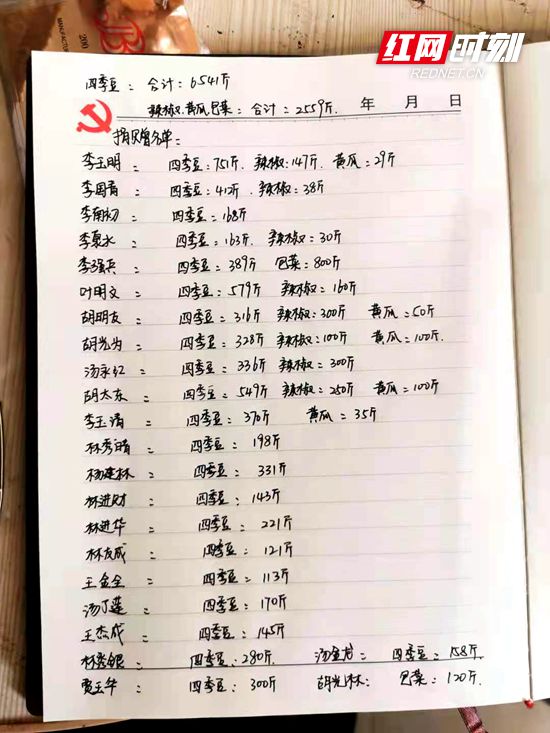 红网时刻
REDNET.CN
四季豆：合计：6541斤
辣椒.黄瓜.包菜：合计：2559斤. 年 月 日
捐赠名单：
李玉明： 四季豆：751斤. 辣椒：147斤. 黄瓜：29斤
李国青： 四季豆：412斤. 辣椒：38斤
李南初： 四季豆：168斤
李夏水： 四季豆：163斤. 辣椒：30斤
李强兵： 四季豆：389斤 包菜：800斤
叶明文： 四季豆：579斤 辣椒：160斤
胡明友： 四季豆：316斤 辣椒：300斤 黄瓜：50斤
胡光为： 四季豆：328斤 辣椒：100斤 黄瓜：100斤.
汤永红： 四季豆：336斤 辣椒：300斤
胡太东： 四季豆：549斤 辣椒：250斤 黄瓜：100斤
李玉清： 四季豆：370斤 黄瓜：35斤
林秀晴 四季豆： 198斤
杨建林： 四季豆： 331斤
林进财： 四季豆：143斤
林进华： 四季豆：221斤
林友成： 四季豆：121斤
王金全： 四季豆：113斤
汤丁莲： 四季豆：170斤
王杰成： 四季豆：145斤
林秀银： 四季豆：280斤. 汤金龙： 四季豆：158斤
贾玉华： 四季豆：300斤 胡光林： 包菜：120斤.